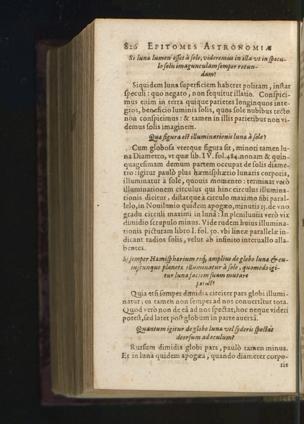 826 EPITOMES ASTRONOMIÆ
Si luna lumen esset à sole, videremus in illa vt in specu-
lo solis imagunculam semper rotun-
dam?
Siquidem luna superficiem haberet politam, instar
speculi: quo negato, non sequitur illatio. Conspici-
mus enim in terra quique parietes longinquos inte-
gros, beneficio luminis solis, quin sole nubibus tecto
non conspicimus: & tamen in illis parietibus non vi-
demus solis imaginem.
Qua figura est illuminationis lunæ à sole?
Cum globosa vterque figura sit, minori tamen lu-
na Diametro, vt quæ lib. IV. fol. 484. nonam & quin-
quagesimam demum partem occupat de solis diame-
tro: igitur paulò plus hæmisphærio lunaris corporis,
illuminatur à sole, quouis momento: terminat verò
illuminationem circulus qui hinc circulus illumina-
tionis dicitur, distatque à circulo maximo sibi paralle-
lo, in Nouilunio quidem apogæo, minutis 15. de vno
gradu circuli maximi in luna: In plenilunijs verò vix
dimidio scrupulo minus. Vide eadem huius illumina-
tionis picturam libro I. fol. 50. vbi lineæ parallelæ in-
dicant radios solis, velut ab infinito interuallo alla-
bentes.
Si semper Hæmisphærium, eoque amplius de globo lunæ &
cuiusque planetæ illuminatur à sole, quomodo igi-
tur luna faciem suam mutare
potest?
Quia etsi semper dimidia circiter pars globi illumi-
natur: ea tamen non semper ad nos conuertitur tota.
Quod verò non de eâ ad nos spectat, hoc neque videri
potest, sed latet post globum in parte auersâ.
Quantum igitur de globo lunæ vel sideris spectat
deorsum ad oculum?
Rursum dimidia globi pars, paulò tamen minus.
Et in luna quidem apogæa, quando diameter corpo-